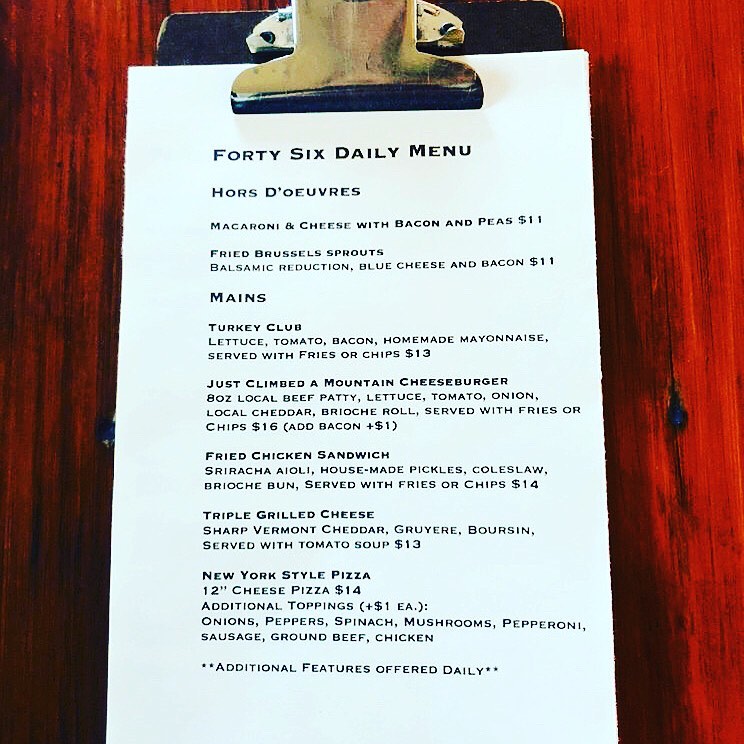 Forty Six Daily Menu
Hors D'oeuvres
Macaroni & Cheese with Bacon and Peas $11
Fried Brussels sprouts
Balsamic reduction, blue cheese and bacon $11
Mains
Turkey Club
Lettuce, tomato, bacon, homemade mayonnaise,
served with Fries or chips $13
Just Climbed a Mountain Cheeseburger
8oz local beef patty, lettuce, tomato, onion,
local cheddar, brioche roll, served with fries or
Chips $16 (add bacon +$1)
Fried Chicken Sandwich
Sriracha aioli, house-made pickles, coleslaw,
brioche bun, Served with fries or Chips $14
Triple Grilled Cheese
Sharp Vermont Cheddar, Gruyere, Boursin,
Served with tomato soup $13
New York Style Pizza
12" Cheese Pizza $14
Additional Toppings (+$1 ea.):
Onions, Peppers, Spinach, Mushrooms, Pepperoni,
sausage, ground beef, chicken
**Additional Features offered Daily**